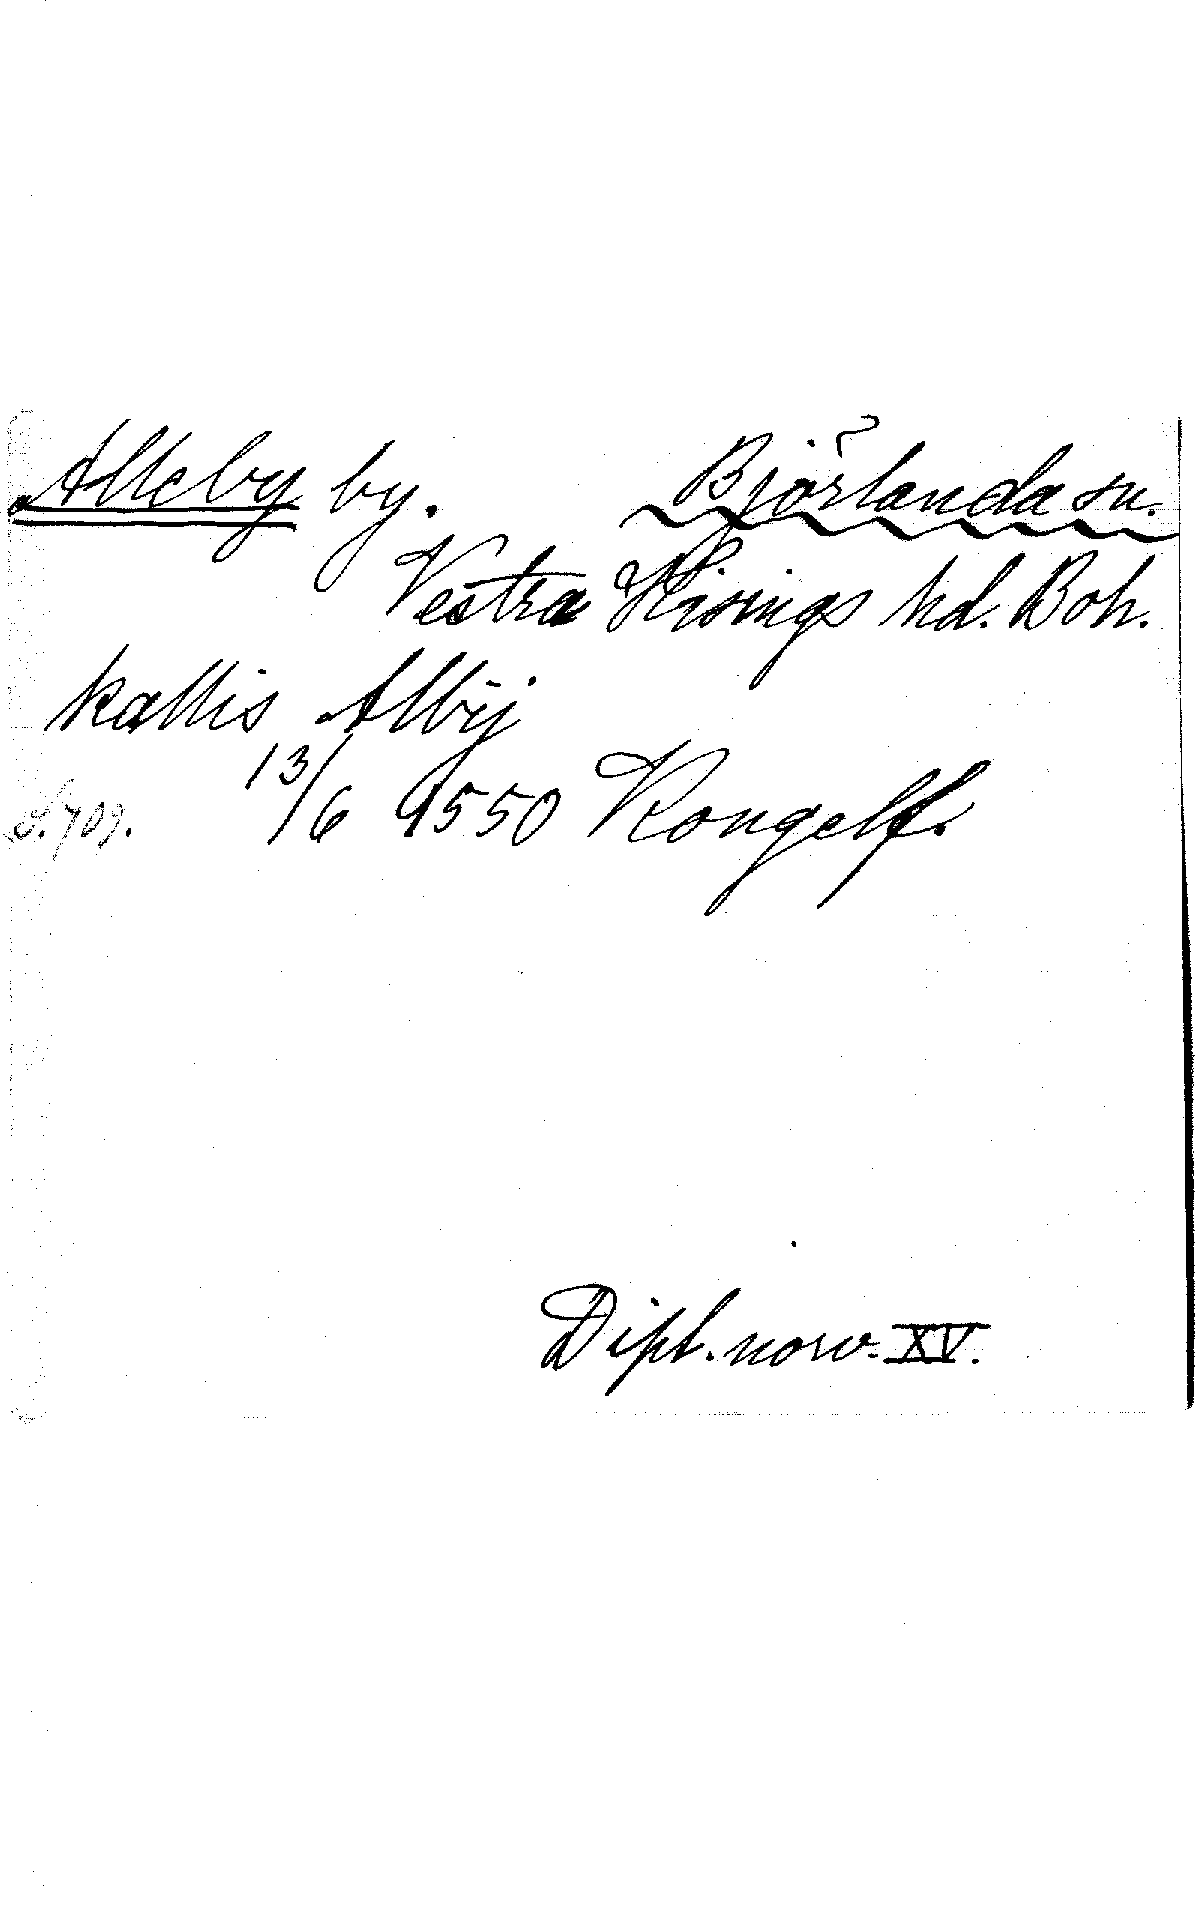 Alleby by. Björlanda sn.
Vestra Hisings hd. Boh.
kallis Albÿ
S. 709. 13/6 1550 Kongelf.
Dipl. norv. XV.